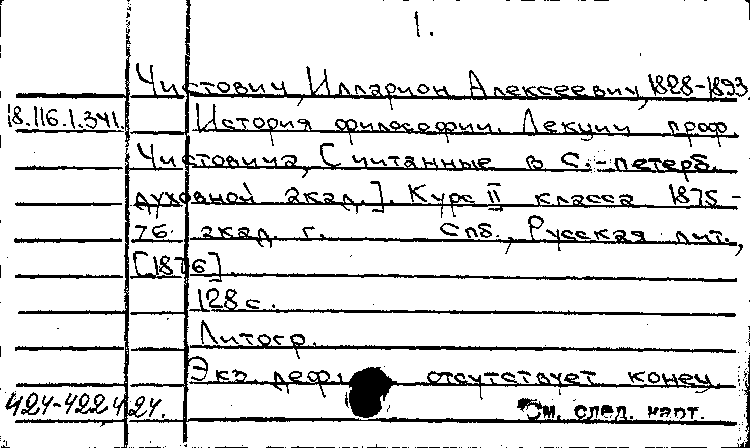 1.
Чистович, Илларион Алексеевич, 1828-1893.
18.116.1.341. История философии. Лекции проф.
Чистовича, [читанные в С.-петерб.
духовной акад.]. Курс II класса 1875-
76 акад. г. Спб., Русская лит.,
[1876].
128 с.
Литогр.
Экз. деф.: отсутствует конец.
424-422,424. См. след. карт.